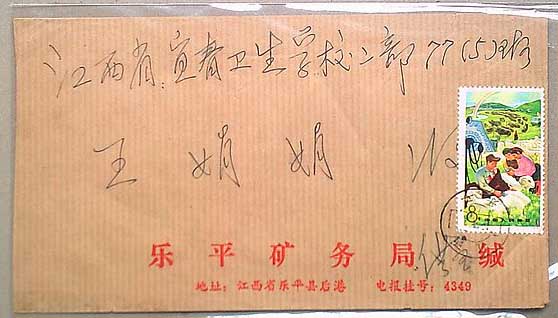 江西省宜春卫生学校二部77(5)班
王娟娟 收
乐平矿务局 缄
地址：江西省乐平县后港 电报挂号：4349
8